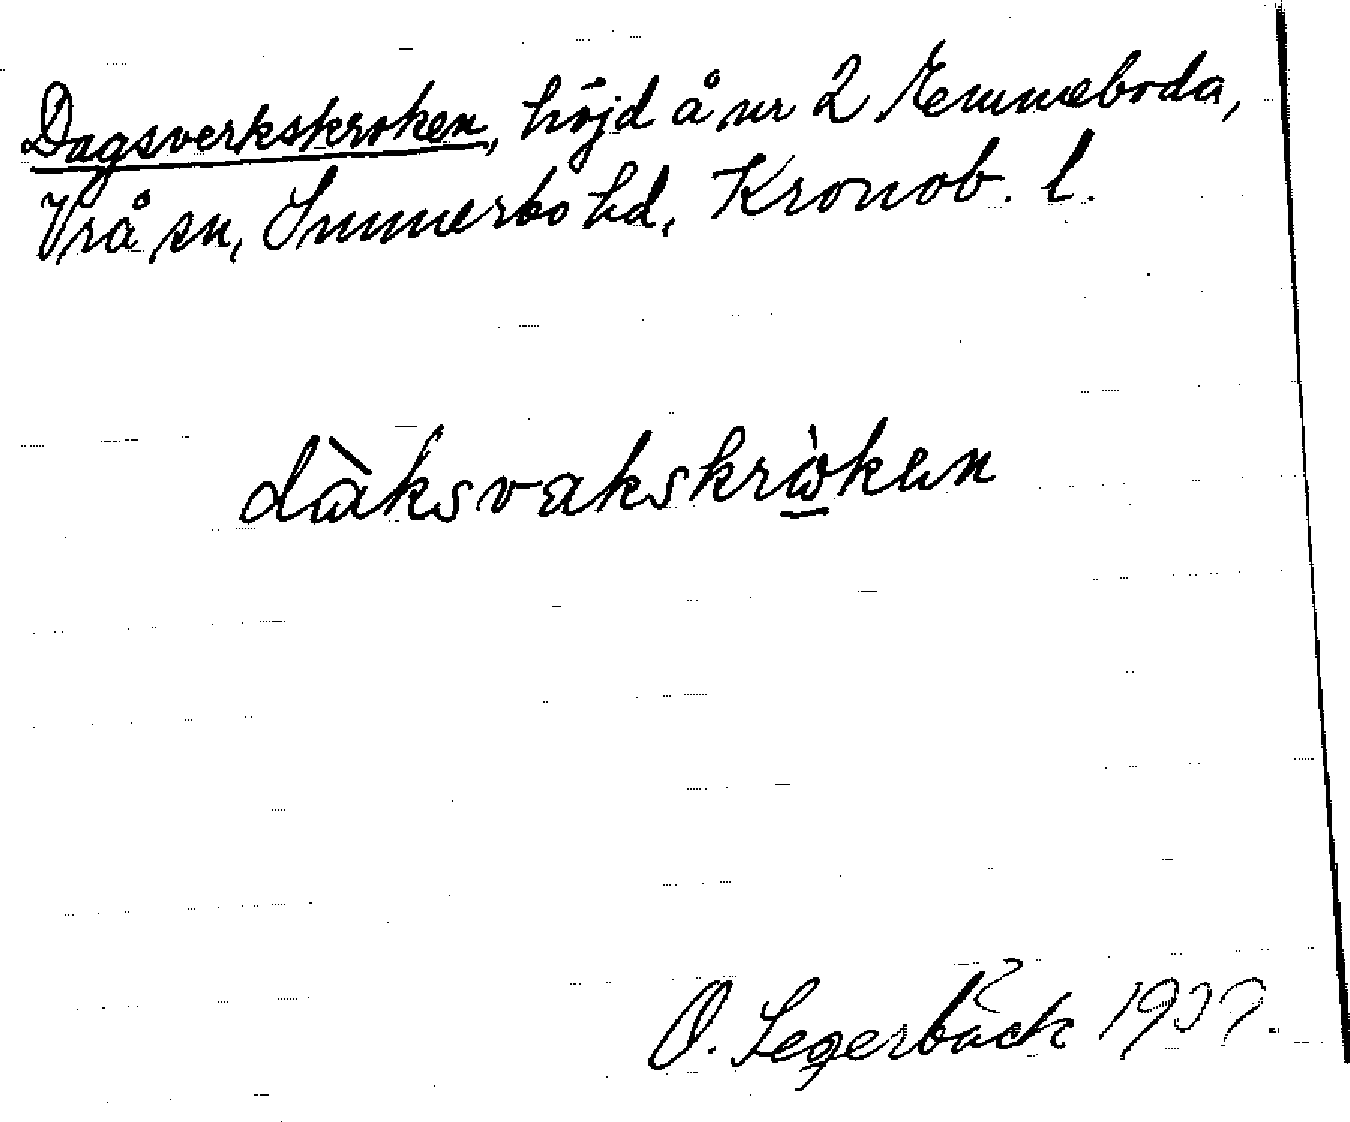 Dagsverkskroken, höjd å nr 2 Emmeboda,
Vrå sn, Sunnerbo hd, Kronob. l.
dàksvakskrὼken
O. Segerbäck 1937.